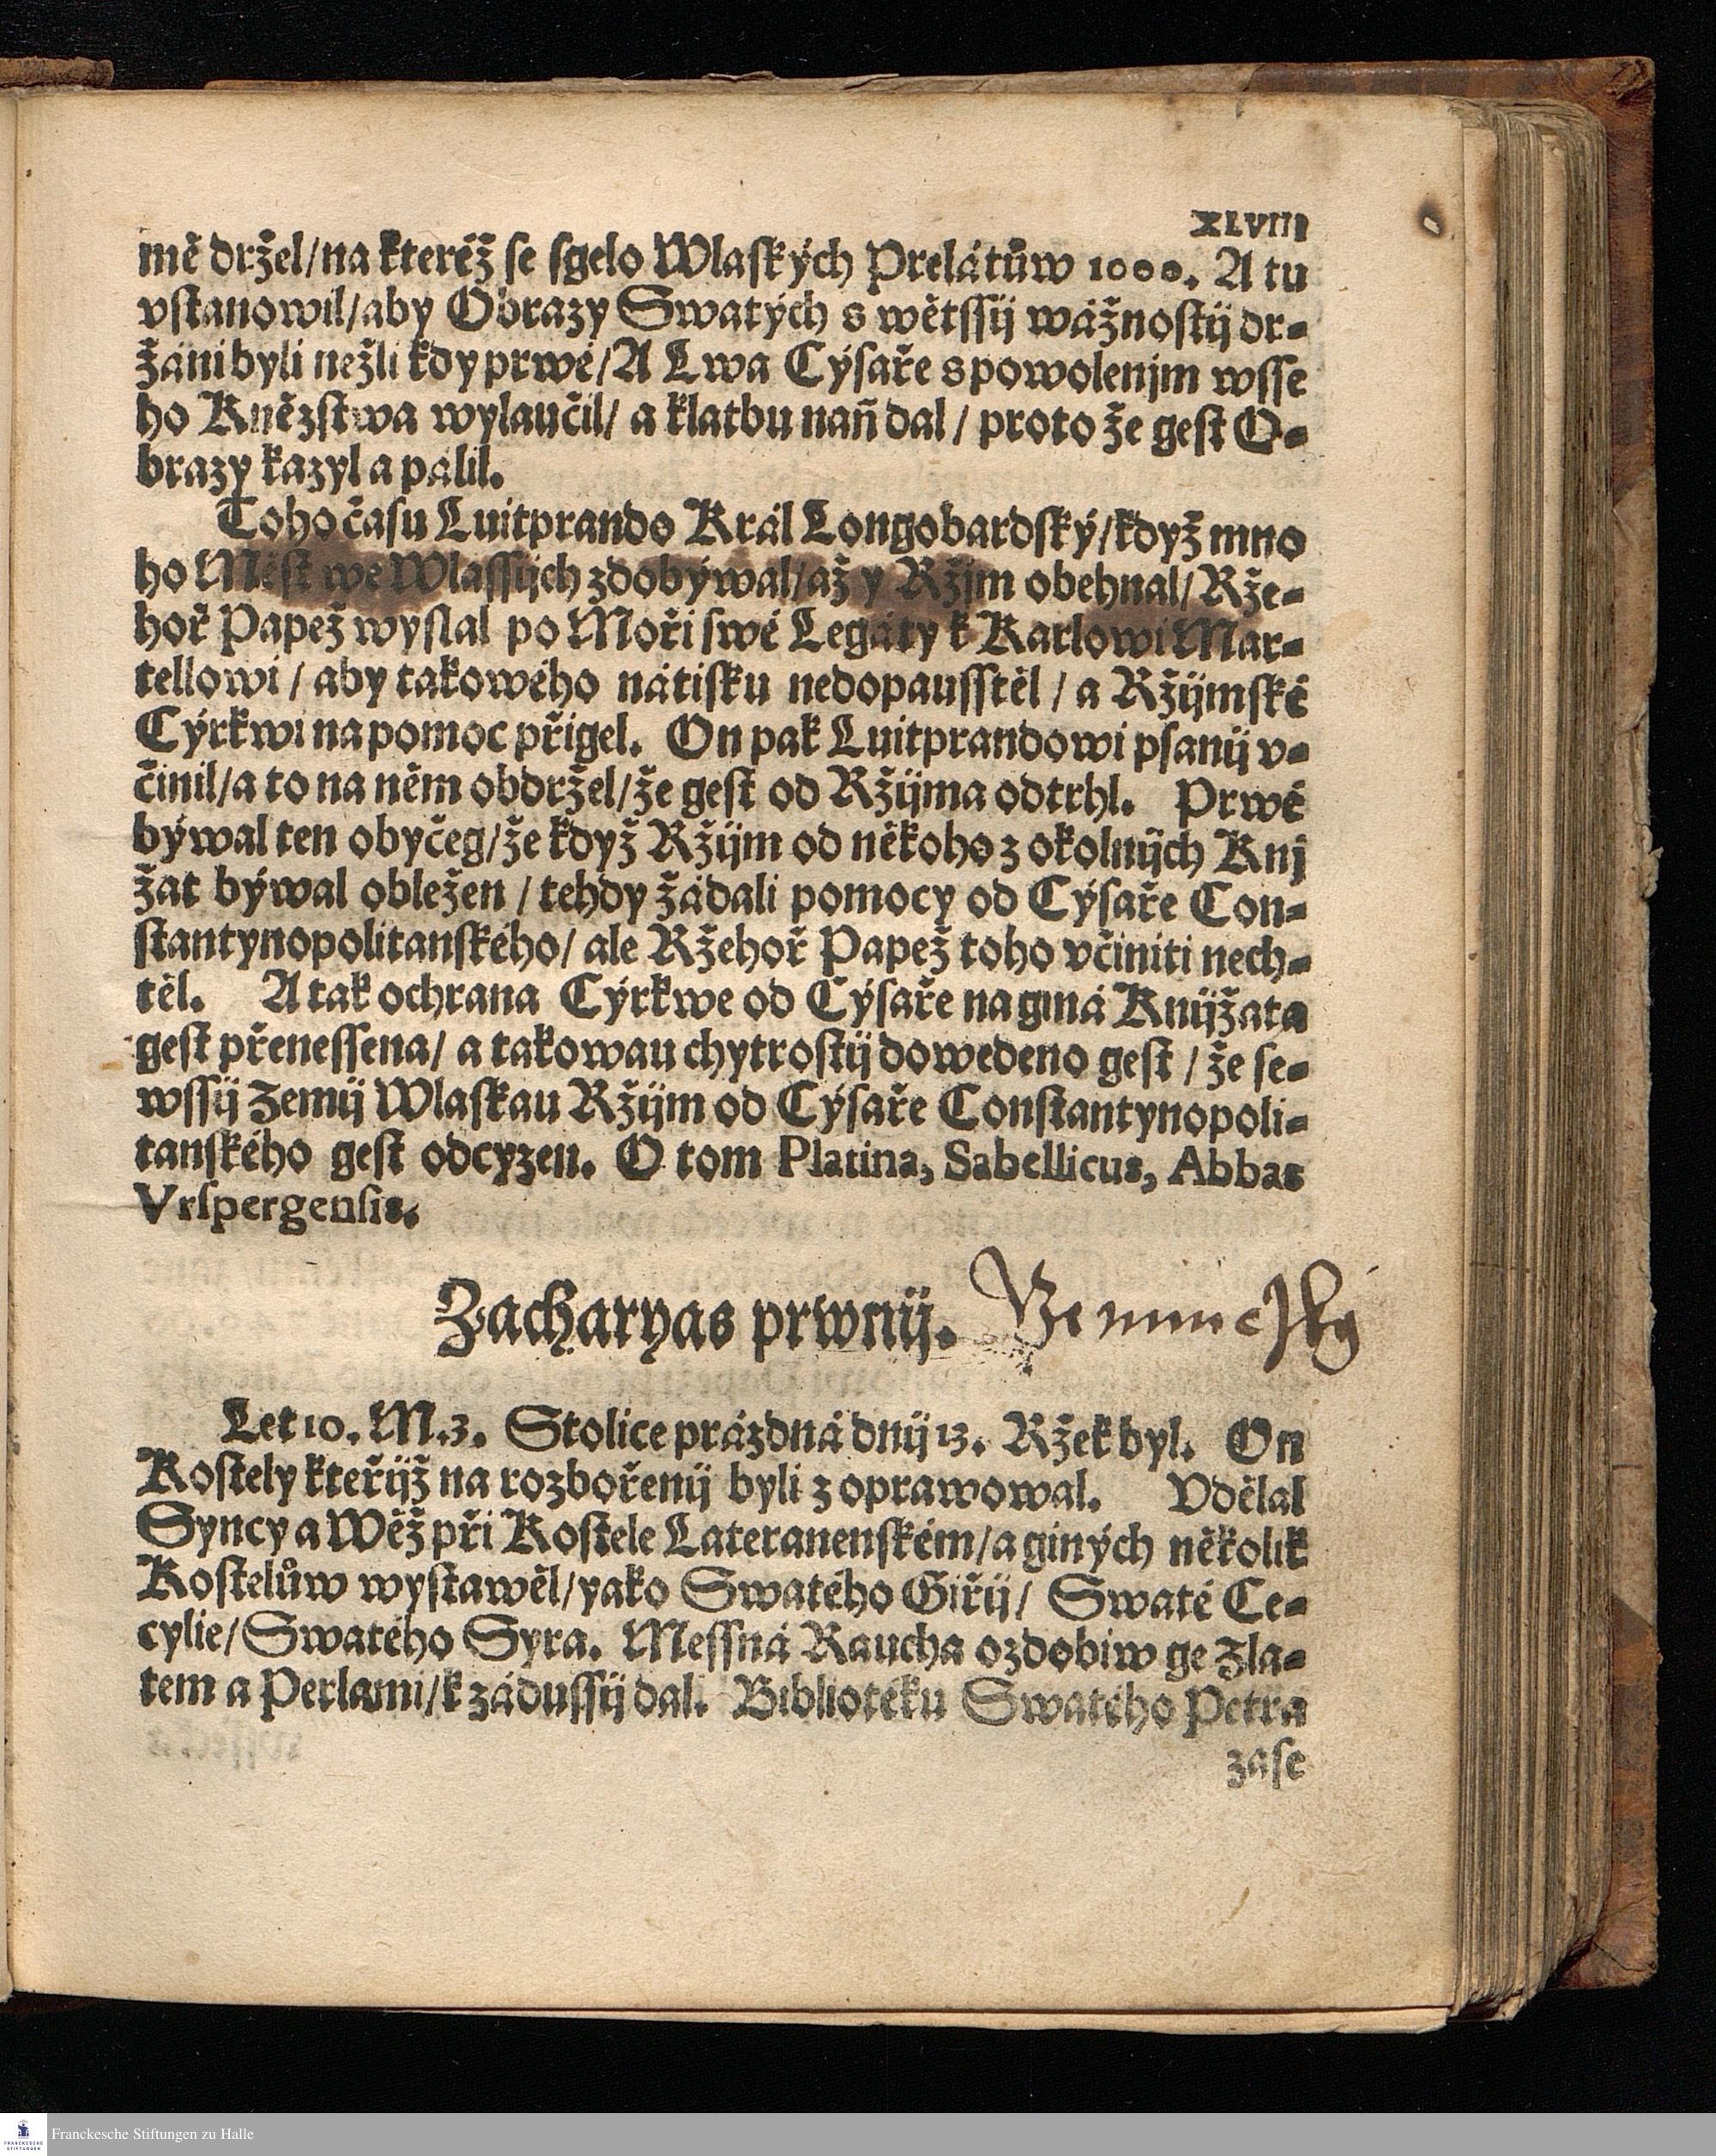 XLVIII
mě držel/na kteréž se sgelo Wlaských Prelátůw 1000. A tu
vstanowil/aby Obrazy Swatých s wětssij wážnostij dr-
žáni byli nežli kdy prwé/A Lwa Cýsaře s powolenjm wsse
ho Kněžstwa wylaučil/ a klatbu naň dal/ proto že gest O-
brazy kazyl a pálil.
Toho času Luitprando Král Longobardský/když mno
ho Měst we Wlassijch zdobýwal/až y Ržjm obehnal/Rže-
hoř Papež wyslal po Moři swé Legáty k Karlowi Mar-
tellowi/ aby takowého nátisku nedopausstěl/ a Ržijmské
Cýrkwi na pomoc přigel. On pak Luitprandowi psanij v-
činil/a to na něm obdržel/že gest od Ržijma odtrhl. Prwé
býwal ten obyčeg/že když Ržijm od někoho z okolnijch Knj
žat býwal obležen/ tehdy žádali pomocy od Cýsaře Con-
stantynopolitanského/ ale Ržehoř Papež toho včiniti nech-
těl. A tak ochrana Cýrkwe od Cýsaře na giná Knijžata
gest přenessena/ a takowau chytrostij dowedeno gest/ že se-
wssij Zemij Wlaskau Ržijm od Cýsaře Constantynopoli-
tanského gest odcyzen. O tom Platina, Sabellicus, Abbas
Vrspergensis.
Zacharyas prwnij.
Let 10. M.3. Stolice prázdná dnij 13. Ržek byl. On
Kostely kteřijž na rozbořenij byli zoprawowal. Vdělal
Syncy a Wěž při Kostele Lateranenském/a giných několik
Kostelůw wystawěl/yako Swatého Giřij/ Swaté Ce-
cylie/Swatého Syra. Messná Raucha ozdobiw ge Zla-
tem a Perlami/k zádussij dal. Bibliotéku Swatého Petra
zase
Franckesche Stiftungen zu Halle
FRANCKESCHE
STIFTUNGEN